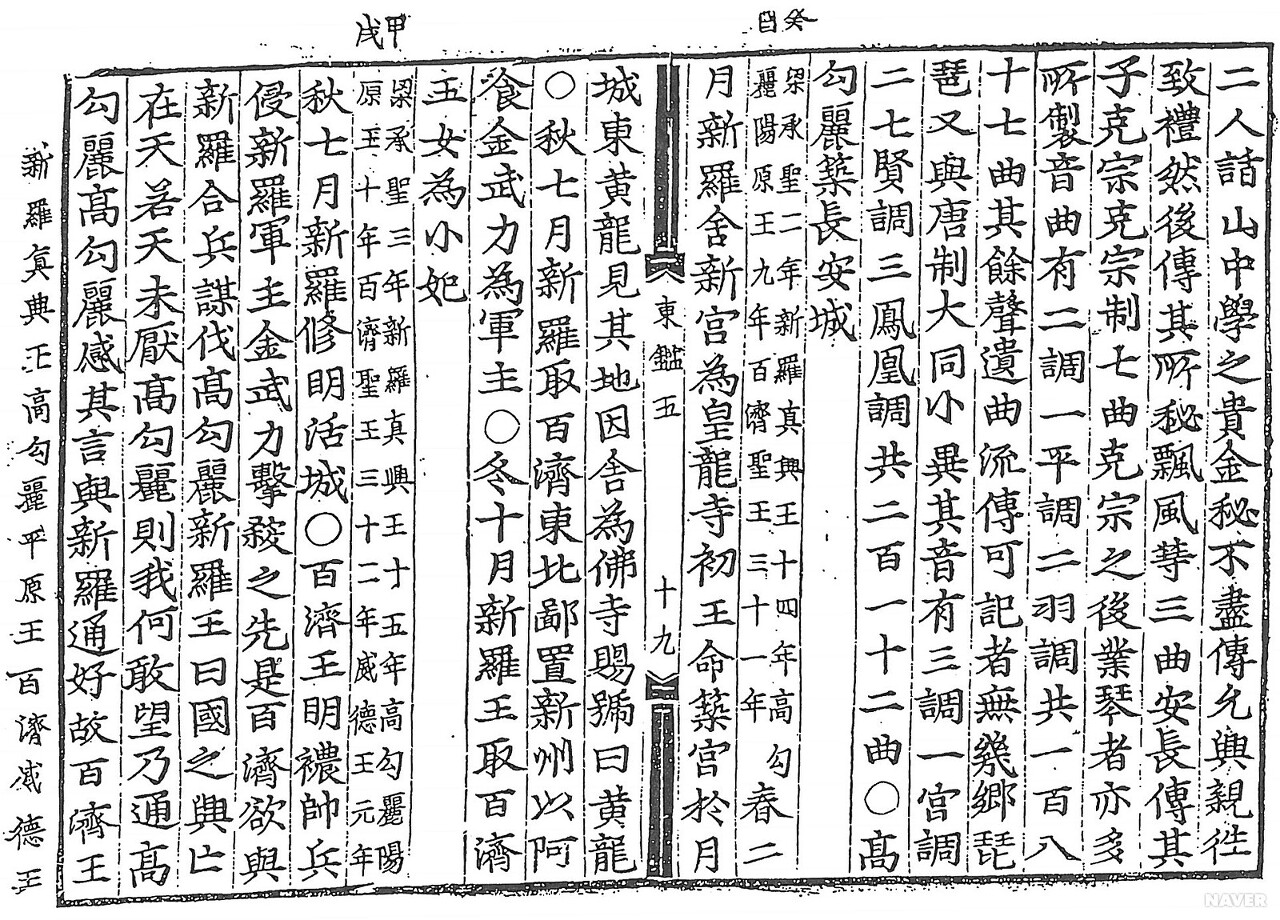 癸酉
甲戌
二人話山中學之貴金秘不盡傳允興親徃
致禮然後傳其所秘飄風等三曲安長傳其
子克宗克宗制七曲克宗之後業琴者亦多
所製音曲有二調一平調二羽調共一百八
十七曲其餘聲遺曲流傳可記者無幾鄕琵
琶又與唐制大同小異其音有三調一宮調
二七賢調三鳳凰調共二百一十二曲○高
勾麗築長安城
梁承聖二年新羅真興王十四年高勾
麗陽原王九年百濟聖王三十一年
春二
月新羅舍新宮為皇龍寺初王命築宮於月
東鑑五
十九
城東黃龍見其地因舍為佛寺賜號曰黃龍
○秋七月新羅取百濟東北鄙置新州以阿
飡金武力為軍主○冬十月新羅王取百濟
王女為小妃
梁承聖三年新羅真興王十五年高勾麗陽
原王十年百濟聖王三十二年威德王元年
秋七月新羅修明活城○百濟王明襛帥兵
侵新羅軍主金武力擊殺之先是百濟欲與
新羅合兵謀伐高勾麗新羅王曰國之興亡
在天若天未厭高勾麗則我何敢望乃通高
勾麗高勾麗感其言與新羅通好故百濟王
新羅眞興王高勾麗平原王百濟威德王
NAVER